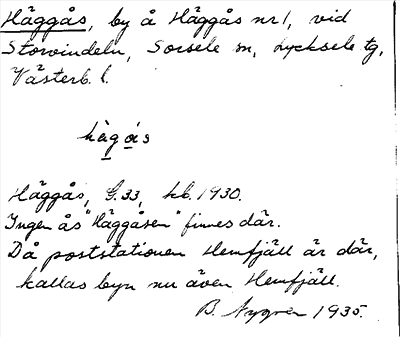 Häggås, by å Häggås nr 1, vid
Storvindeln, Sorsele sn, Lycksele tg,
Västerb. l.
hägås
Häggås, G.33, kb. 1930.
Ingen ås "Häggåsen" finnes där.
Då poststationen Hemfjäll är där,
kallas byn nu även Hemfjäll.
B. Nygren 1935.